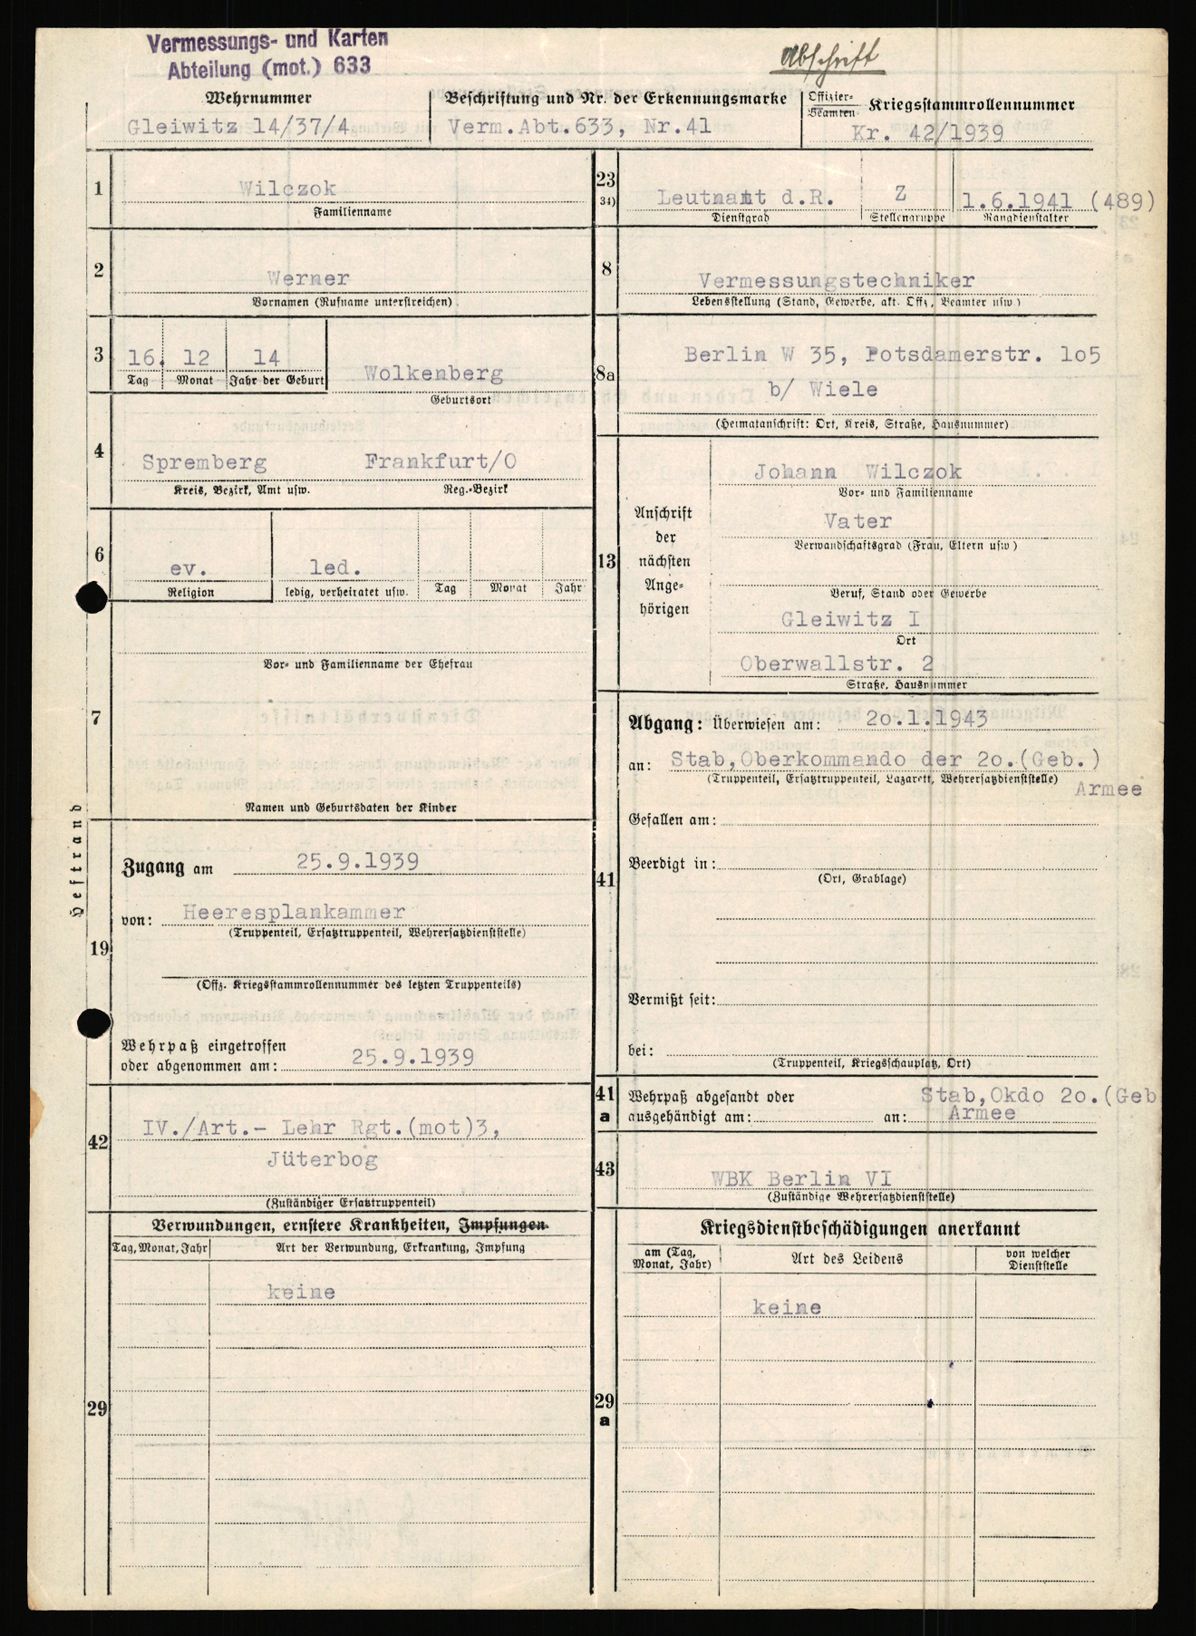 Vermessungs- und Karten
Abteilung (mot.) 633
Abschrift
Wehrnummer
Gleiwitz 14/37/4
Beschriftung und Nr. der Erkennungsmarke
Verm.Abt.633, Nr.41
Offizier-
Beamten-
Kriegsstammrollennummer
Kr. 42/1939
1
Wilczok
Familienname
2
Werner
Vornamen (Rufname unterstreichen)
3
16. 12 14
Tag Monat Jahr der Geburt
Wolkenberg
Geburtsort
4
Spremberg Frankfurt/O
Kreis, Bezirk, Amt usw. Reg.-Bezirk
6
ev. led.
Religion ledig, verheiratet usw. Tag Monat Jahr
Vor- und Familienname der Ehefrau
7
Namen und Geburtsdaten der Kinder
Heftrand
Zugang am 25.9.1939
von: Heeresplankammer
(Truppenteil, Ersatztruppenteil, Wehrersatzdienststelle)
19
(Offz. Kriegsstammrollennummer des letzten Truppenteils)
Wehrpaß eingetroffen
oder abgenommen am: 25.9.1939
42
IV./Art.- Lehr Rgt.(mot)3,
Jüterbog
(Zuständiger Ersatztruppenteil)
Verwundungen, ernstere Krankheiten, Impfungen
Tag, Monat, Jahr Art der Verwundung, Erkrankung, Impfung
keine
29
23
34)
Leutnant d.R. Z 1.6.1941 (489)
Dienstgrad Stellengruppe Rangdienstalter
8
Vermessungstechniker
Lebensstellung (Stand, Gewerbe, akt. Offz., Beamter usw.)
8a
Berlin W 35, Potsdamerstr. 1o5
b/ Wiele
(Heimatanschrift: Ort, Kreis, Straße, Hausnummer)
13
Anschrift
der
nächsten
Ange-
hörigen
Johann Wilczok
Vor- und Familienname
Vater
Verwandschaftsgrad (Frau, Eltern usw.)
Beruf, Stand oder Gewerbe
Gleiwitz I
Ort
Oberwallstr. 2
Straße, Hausnummer
Abgang: Überwiesen am: 2o.1.1943
an: Stab,Oberkommando der 2o.(Geb.)
(Truppenteil, Ersatztruppenteil, Lazarett, Wehrersatzdienststelle)
Armee
Gefallen am:
Beerdigt in:
(Ort, Grablage)
41
Vermißt seit:
bei:
(Truppenteil, Kriegsschauplatz, Ort)
41
a
Wehrpaß abgesandt oder Stab,Okdo 2o.(Geb
ausgehändigt am: an: Armee
43
WBK Berlin VI
(Zuständige Wehrersatzdienststelle)
Kriegsdienstbeschädigungen anerkannt
am (Tag,
Monat, Jahr)
Art des Leidens
von welcher
Dienststelle
keine
29
a